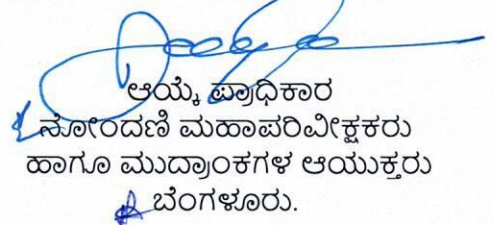 ಆಯ್ಕೆ ಪ್ರಾಧಿಕಾರ
ನೋಂದಣಿ ಮಹಾಪರಿವೀಕ್ಷಕರು
ಹಾಗೂ ಮುದ್ರಾಂಕಗಳ ಆಯುಕ್ತರು
ಬೆಂಗಳೂರು.